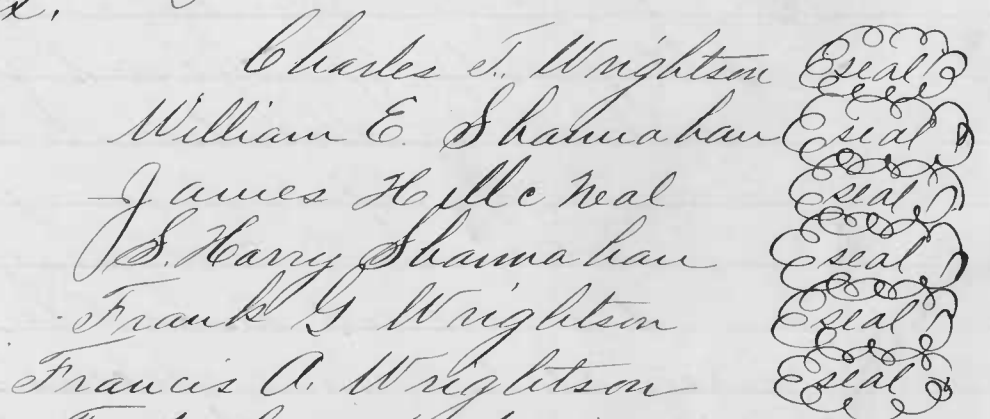 Charles T. Wrightson (seal)
William E. Shannahan (seal)
James H McNeal (seal)
S. Harry Shannahan (seal)
Frank G Wrightson (seal)
Francis A. Wrightson (seal)